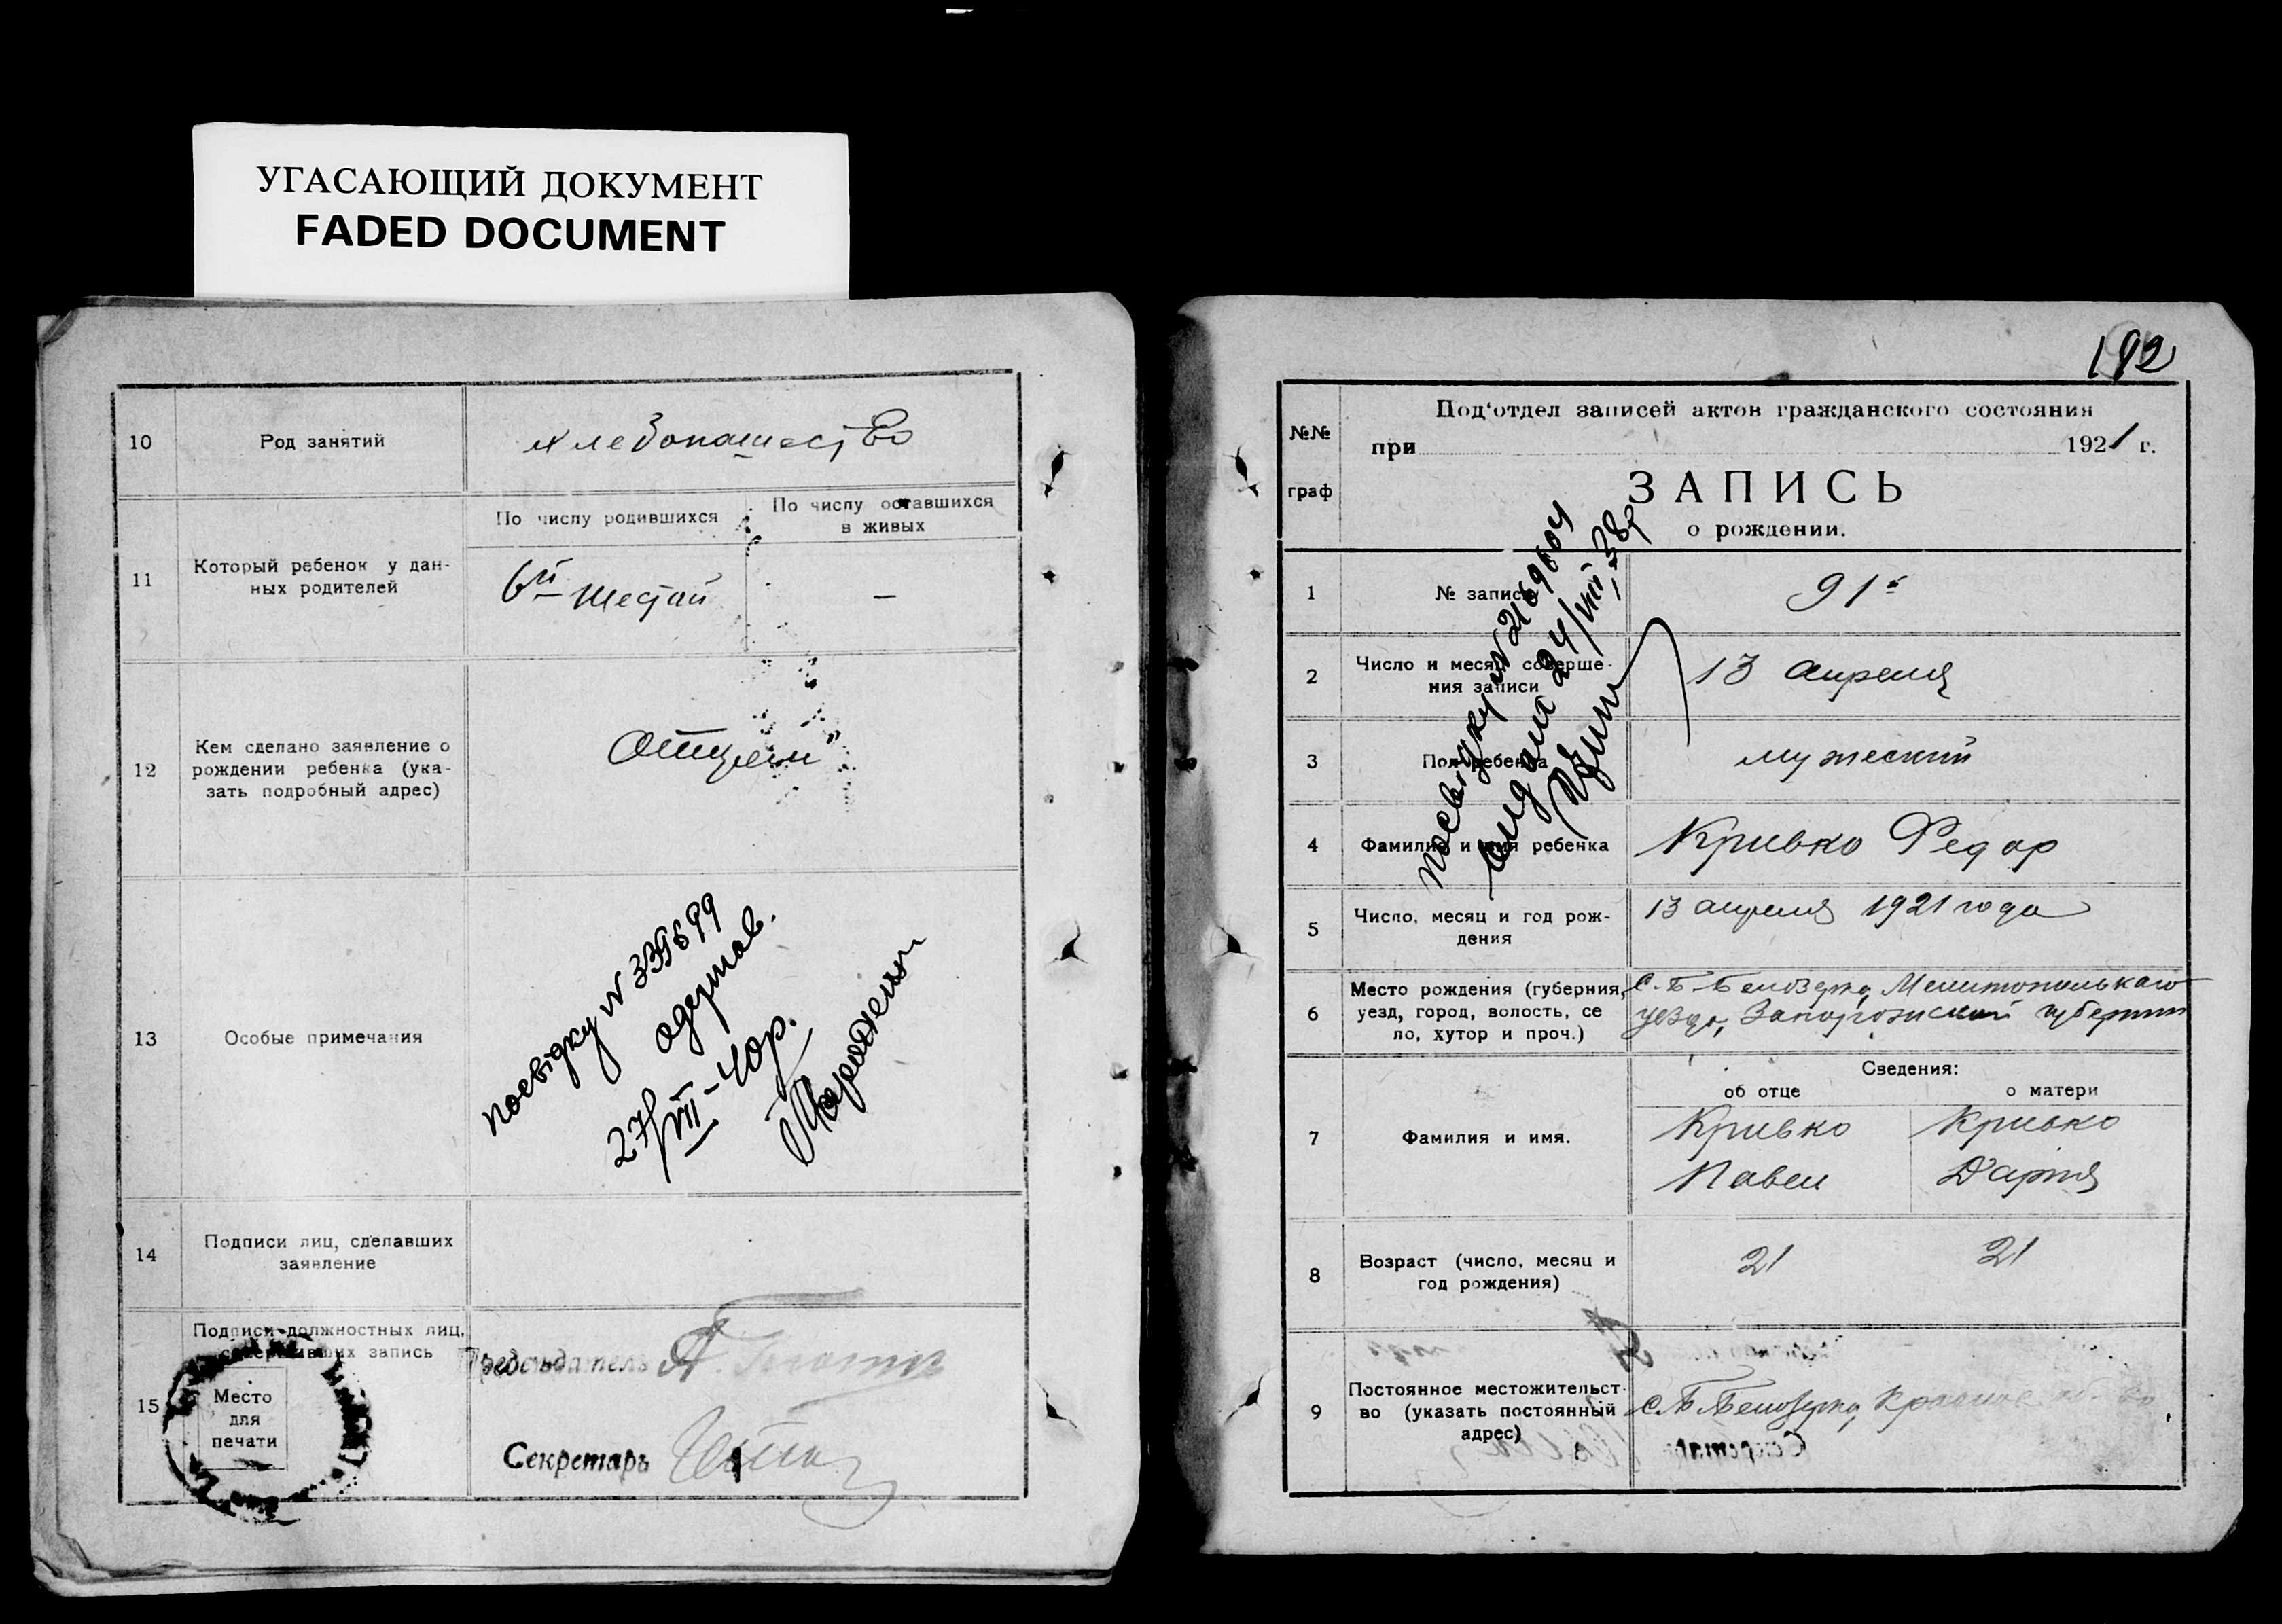 УГАСАЮЩИЙ ДОКУМЕНТ
FADED DOCUMENT
10
Род занятий
хлебопашество
11
Который ребенок у дан-
ных родителей
По числу родившихся
По числу оставшихся
в живых
6й шестой
—
12
Кем сделано заявление о
рождении ребенка (ука-
зать подробный адрес)
Отцем
13
Особые примечания
посвідку N 339699
одержав.
27/VII-40р.
14
Подписи лиц, сделавших
заявление
15
Подписи должностных лиц,
совершивших запись
Место
для
печати
Председатель А.
Секретарь
192
№№
граф
Под'отдел записей актов гражданского состояния
при 1921 г.
ЗАПИСЬ
о рождении.
1
№ записи
91
2
Число и месяц соверше-
ния записи
13 апреля
3
Пол ребенка
мужеский
4
Фамилия и имя ребенка
Кривко Федор
5
Число, месяц и год рож-
дения
13 апреля 1921 года
6
Место рождения (губерния,
уезд, город, волость, се
ло, хутор и проч.)
С. Б-Белозерка, Мелитополькаго
уезда, Запорожской губернии
посвідку N
видано 24/VIII-38р
Сведения:
об отце
о матери
7
Фамилия и имя.
Кривко
Павел
Кривко
Дария
8
Возраст (число, месяц и
год рождения)
21
21
9
Постоянное местожительст-
во (указать постоянный
адрес)
С. Б Белозерка,